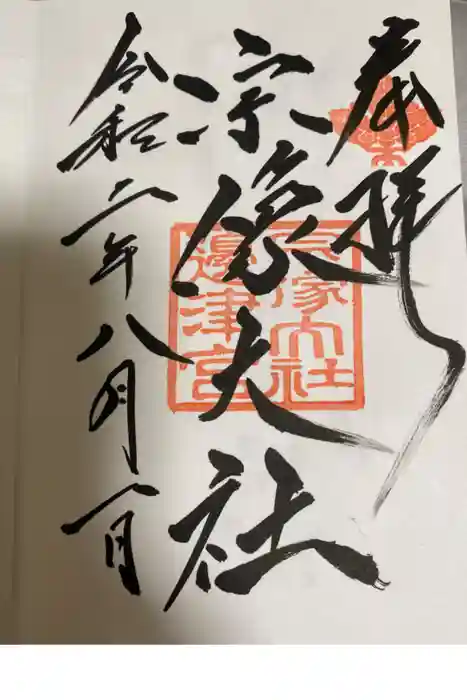 奉拝
宗像大社
宗像大社
邊津宮
令和二年八月一日